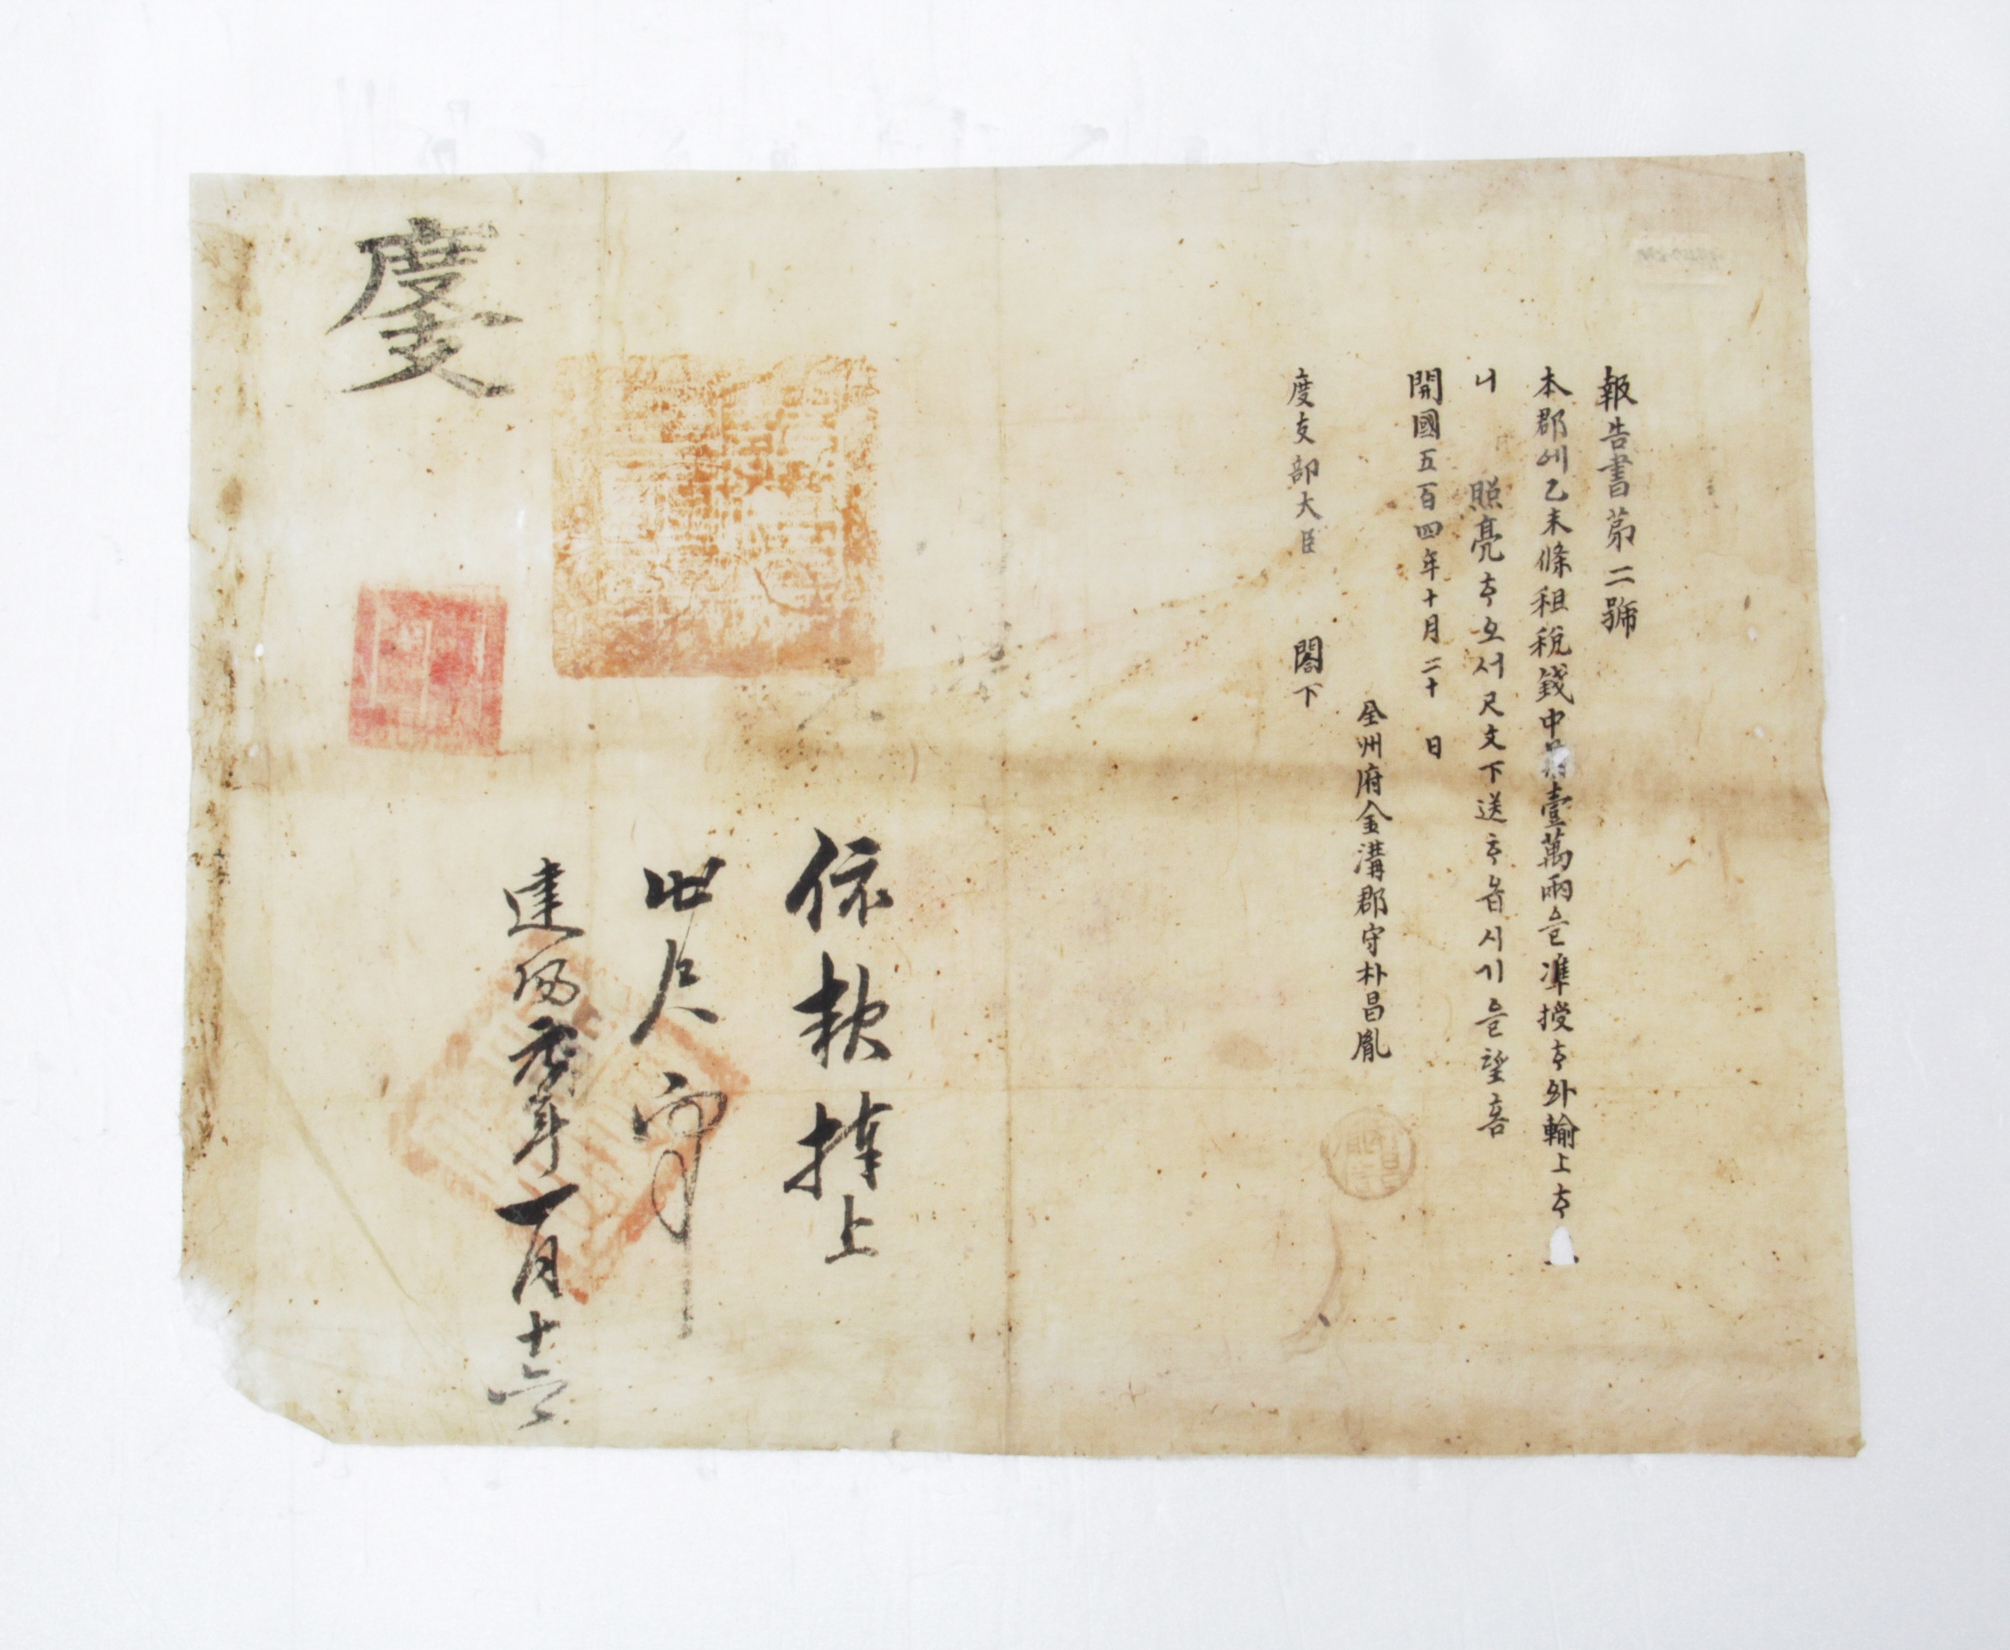 報告書第二號
本郡에乙未條租稅錢中壹萬兩을準授ᄒᆞ와輸上ᄒᆞ
니 照亮ᄒᆞ오서尺文下送ᄒᆞ읍시기을望홈
開國五百四年十月二十 日
全州府金溝郡守朴昌胤
度支部大臣 閣下
依款捧上
此尺
建陽元年一月十六
度支